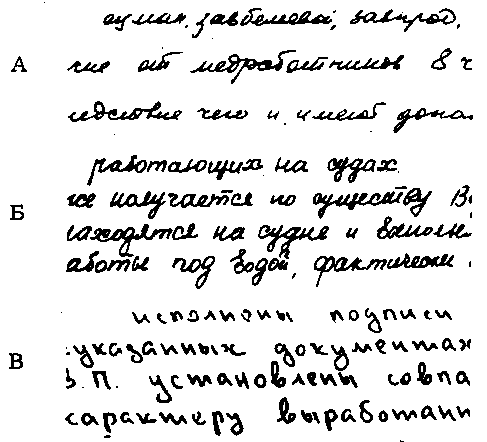 А
чие от медработников в ч
ледствие чего и имеют дона
Б
работающих на судах
же получается по существу В
находятся на судне и выполн
аботы под водой, фактически
В
исполнены подписи
указанных документах
В.П. установлены совпа
характеру выработанн